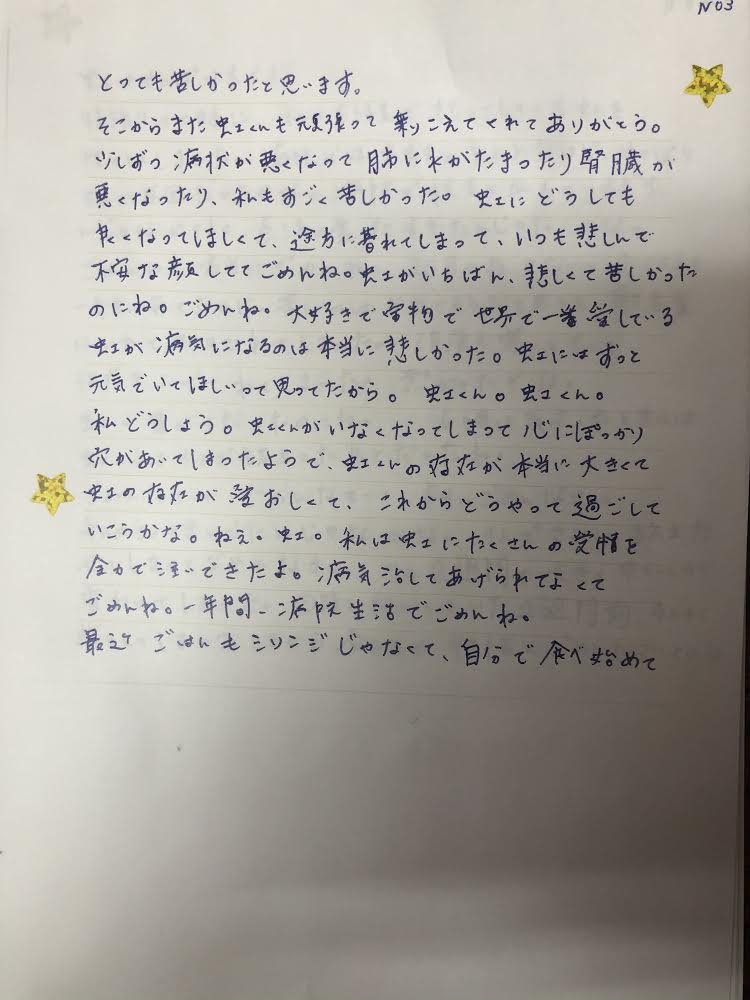 NO3
とっても苦しかったと思います。
そこからまた虹くんも頑張って乗りこえてくれてありがとう。
少しずつ病状が悪くなって肺に水がたまったり腎臓が
悪くなったり、私もすごく苦しかった。虹にどうしても
良くなってほしくて、途方に暮れてしまって、いつも悲しんで
不安な顔しててごめんね。虹がいちばん、悲しくて苦しかった
のにね。ごめんね。大好きで宝物で世界で一番愛している
虹が病気になるのは本当に悲しかった。虹にはずっと
元気でいてほしいって思ってたから。虹くん。虹くん。
私どうしよう。虹くんがいなくなってしまって心にぽっかり
穴があいてしまったようで、虹くんの存在が本当に大きくて
虹の存在が愛おしくて、これからどうやって過ごして
いこうかな。ねぇ。虹。私は虹にたくさんの愛情を
全力で注いできたよ。病気治してあげられてなくて
ごめんね。一年間、病院生活でごめんね。
最近ごはんもシリンジじゃなくて、自分で食べ始めて